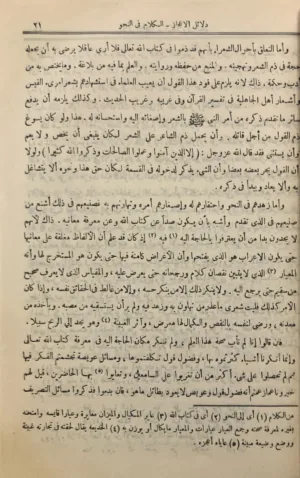 دلائل الإعجاز - الكلام في النحو ٢١
وأما التعلق بأحوال الشعراء بأنهم قد ذموا في كتاب الله تعالى فلا أرى عاقلا يرضى به أن يجعله
حجة في ذم الشعر وتهجينه، والمنع من حفظه وروايته، والعلم بما فيه من بلاغة، وما يختص به من
أدب وحكمة، ذاك لأنه يلزم على قود هذا القول أن يعيب العلماء في استشهادهم بشعر امرئ القيس
وأشعار أهل الجاهلية في تفسير القرآن وفي غريبه وغريب الحديث. وكذلك يلزمه أن يدفع
سائر ما تقدم ذكره من أمر النبي ﷺ بالشعر وإصغائه إليه واستحسانه له. هذا ولو كان يسوغ
ذم القول من أجل قائله، وأن يحمل ذنب الشاعر على الشعر لكان ينبغي أن يخص ولا يعم
وأن يستثنى فقد قال الله عز وجل: (إلا الذين آمنوا وعملوا الصالحات وذكروا الله كثيرا) ولولا
أن القول يجر بعضه بعضا وأن الشيء يذكر لدخوله في القسمة لكان حق هذا ونحوه ألا يتشاغل
به وألا يعاد ويبدأ في ذكره.
وأما زهدهم في النحو واحتقارهم له وإصغارهم أمره وتهاونهم به فصنيعهم في ذلك أشنع من
صنيعهم في الذي تقدم وأشبه بأن يكون صدا عن كتاب الله وعن معرفة معانيه. ذاك لأنهم
لا يجدون بدا من أن يعترفوا بالحاجة إليه (١) فيه (٢) إذ كان قد علم أن الألفاظ مغلقة على معانيها
حتى يكون الإعراب هو الذي يفتحها وأن الأغراض كامنة فيها حتى يكون هو المستخرج لها وأنه
المعيار (٣) الذي لا يتبين نقصان كلام ورجحانه حتى يعرض عليه، والمقياس الذي لا يعرف صحيح
من سقيم حتى يرجع إليه، ولا ينكر ذلك إلا من ينكر حسه، وإلا من غالط في الحقائق نفسه، وإذا كان
الأمر كذلك فليت شعري ما عذر من تهاون به وزهد فيه ولم ير أن يستسقيه من مصبه، ويأخذه من
معدنه، ورضي لنفسه بالنقص والكمال لها معرض، وآثر الغبينة (٤) وهو يجد إلى الربح سبيلا.
فإن قالوا إنا لم نأب صحة هذا العلم، ولم ننكر مكان الحاجة إليه في معرفة كتاب الله تعالى
وإنما أنكرنا أشياء كثرتموه بها، وفضول قول تكلفتموها، ومسائل عويصة تجشمتم الفكر فيها
ثم لم تحصلوا على شيء أكثر من أن تغربوا على السامعين، وتعايوا (٥) بها الحاضرين، قيل لهم
خبرونا عما زعمتم أنه فضول قول وعويص لا يعود بطائل ما هو، فإن بدءوا فذكروا مسائل التصريف
من الكلام (١) أي إلى النحو (٢) أي في كتاب الله (٣) عاير المكيال والميزان معايرة وعيارا قايسه وامتحنه
بغيره لمعرفة صحته وجمع العيار عيارات والمعيار ما يكال أو يوزن به (٤) الخديعة يقال لحقته في تجارته غبينة
ووضع وضيعة مبينة (٥) عاياه أعجزه.